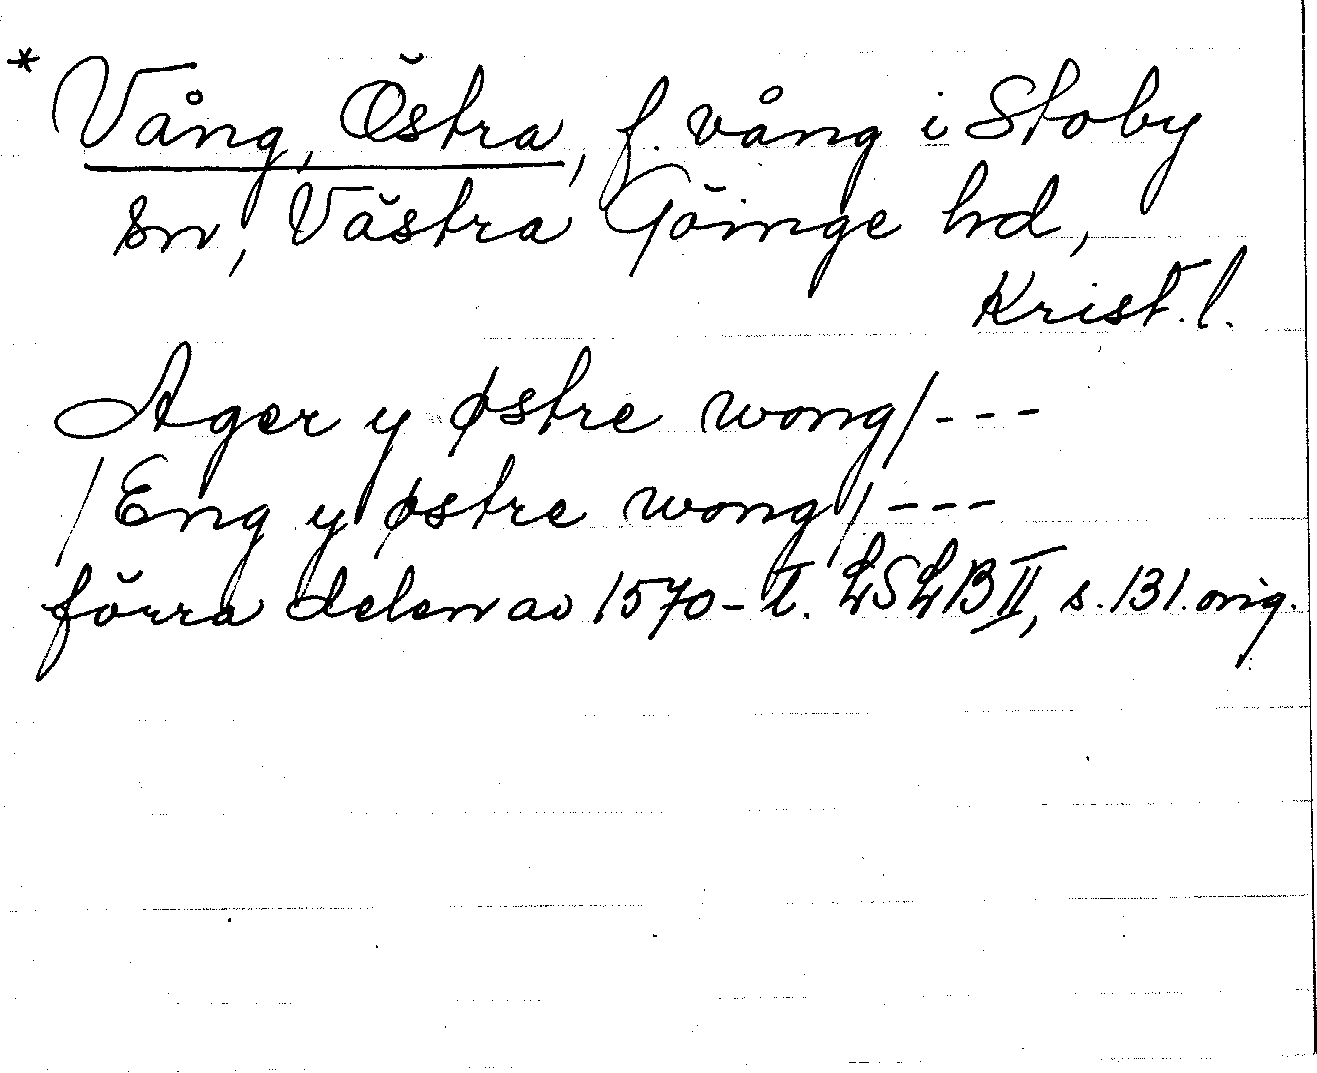 * Vång, Östra, f. vång i Stoby
sn, Västra Göinge hd,
Krist. l.
Ager y østre wong/---
/Eng y østre wong/---
förra delen av 1570-t. LSLB II, s. 131. orig.